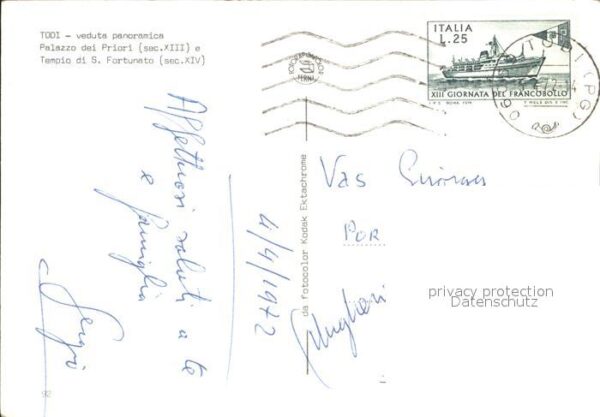 TODI - veduta panoramica
Palazzo dei Priori (sec.XIII) e
Tempio di S. Fortunato (sec.XIV)
ITALIA
L.25
XIII GIORNATA DEL FRANCOBOLLO
TODI (PG)
Affettuosi saluti a te
e famiglia
Sergio
4/4/1972
da fotocolor Kodak Ektachrome
Vas
Por
privacy protection
Datenschutz
92